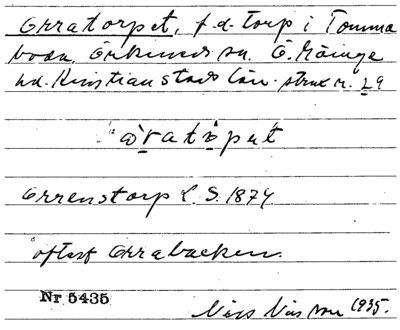 Orratorpet, f.d. torp i Tomma
boda, Örkeneds sn. Ö. Göinge
hd. Kristianstads län. strax n. 29
òratòpət
Orrenstorp L. S. 1874
oftast Orrabacken.
Nr 5435
Nils Nilsson 1935.